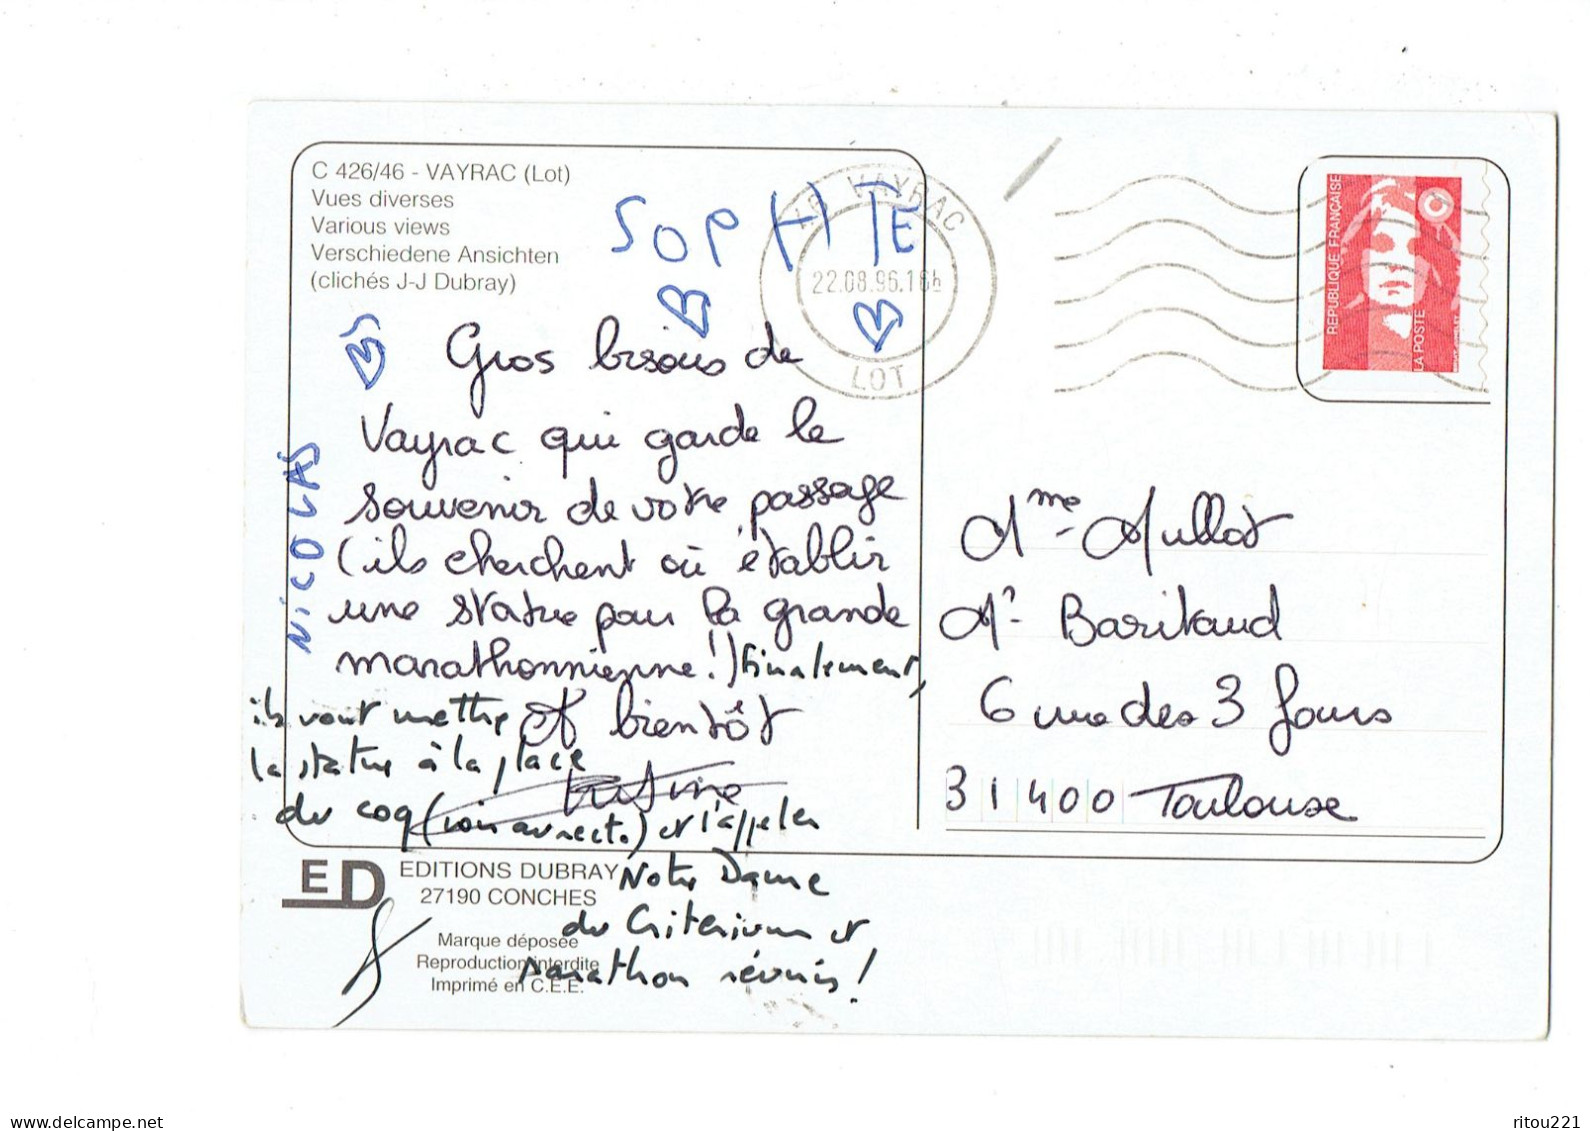 C 426/46 - VAYRAC (Lot)
Vues diverses
Various views
Verschiedene Ansichten
(clichés J-J Dubray)
SOPHIE
NICOLAS
46 VAYRAC
22.08.96.16h
LOT
RÉPUBLIQUE FRANÇAISE
LA POSTE
Gros bisous de
Vayrac qui garde le
souvenir de votre passage
(ils cherchent où établir
une statue pour la grande
marathonnienne!) finalement,
ils vont mettre
A bientôt
la statue à la place
du coq (voir au recto) et l'appeler
Notre Dame
du Criterium et
Marathon réunis!
Mme Mullot
Mr Baritaud
6 rue des 3 fours
31400 Toulouse
ED
EDITIONS DUBRAY
27190 CONCHES
Marque déposée
Reproduction interdite
Imprimé en C.E.E.
www.delcampe.net
ritou221